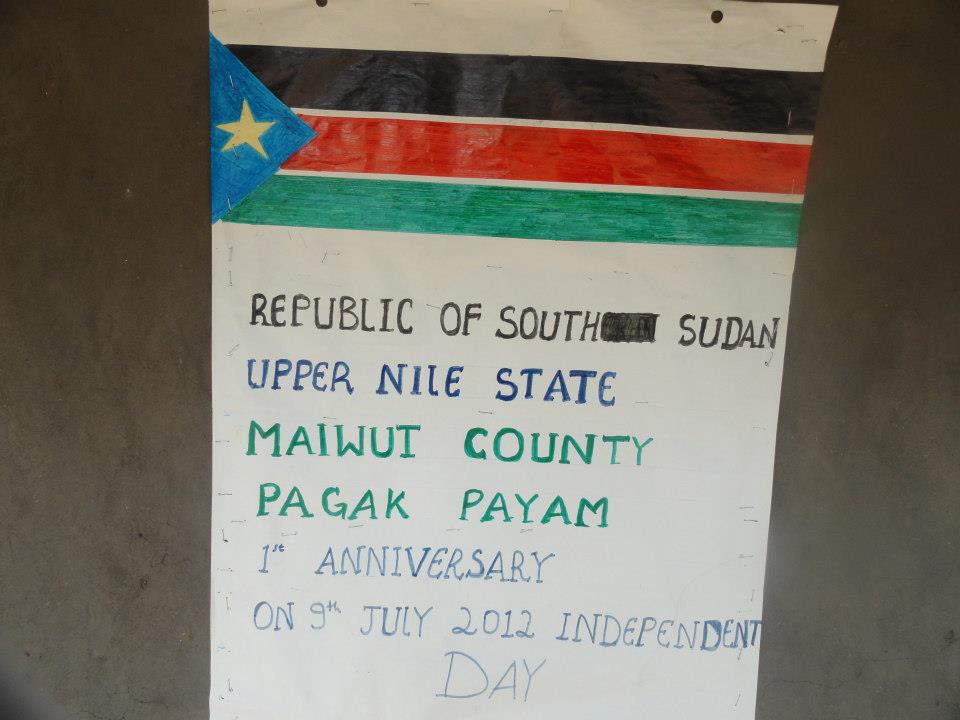 REPUBLIC OF SOUTH SUDAN
UPPER NILE STATE
MAIWUT COUNTY
PAGAK PAYAM
1st ANNIVERSARY
ON 9th JULY 2012 INDEPENDENT
DAY